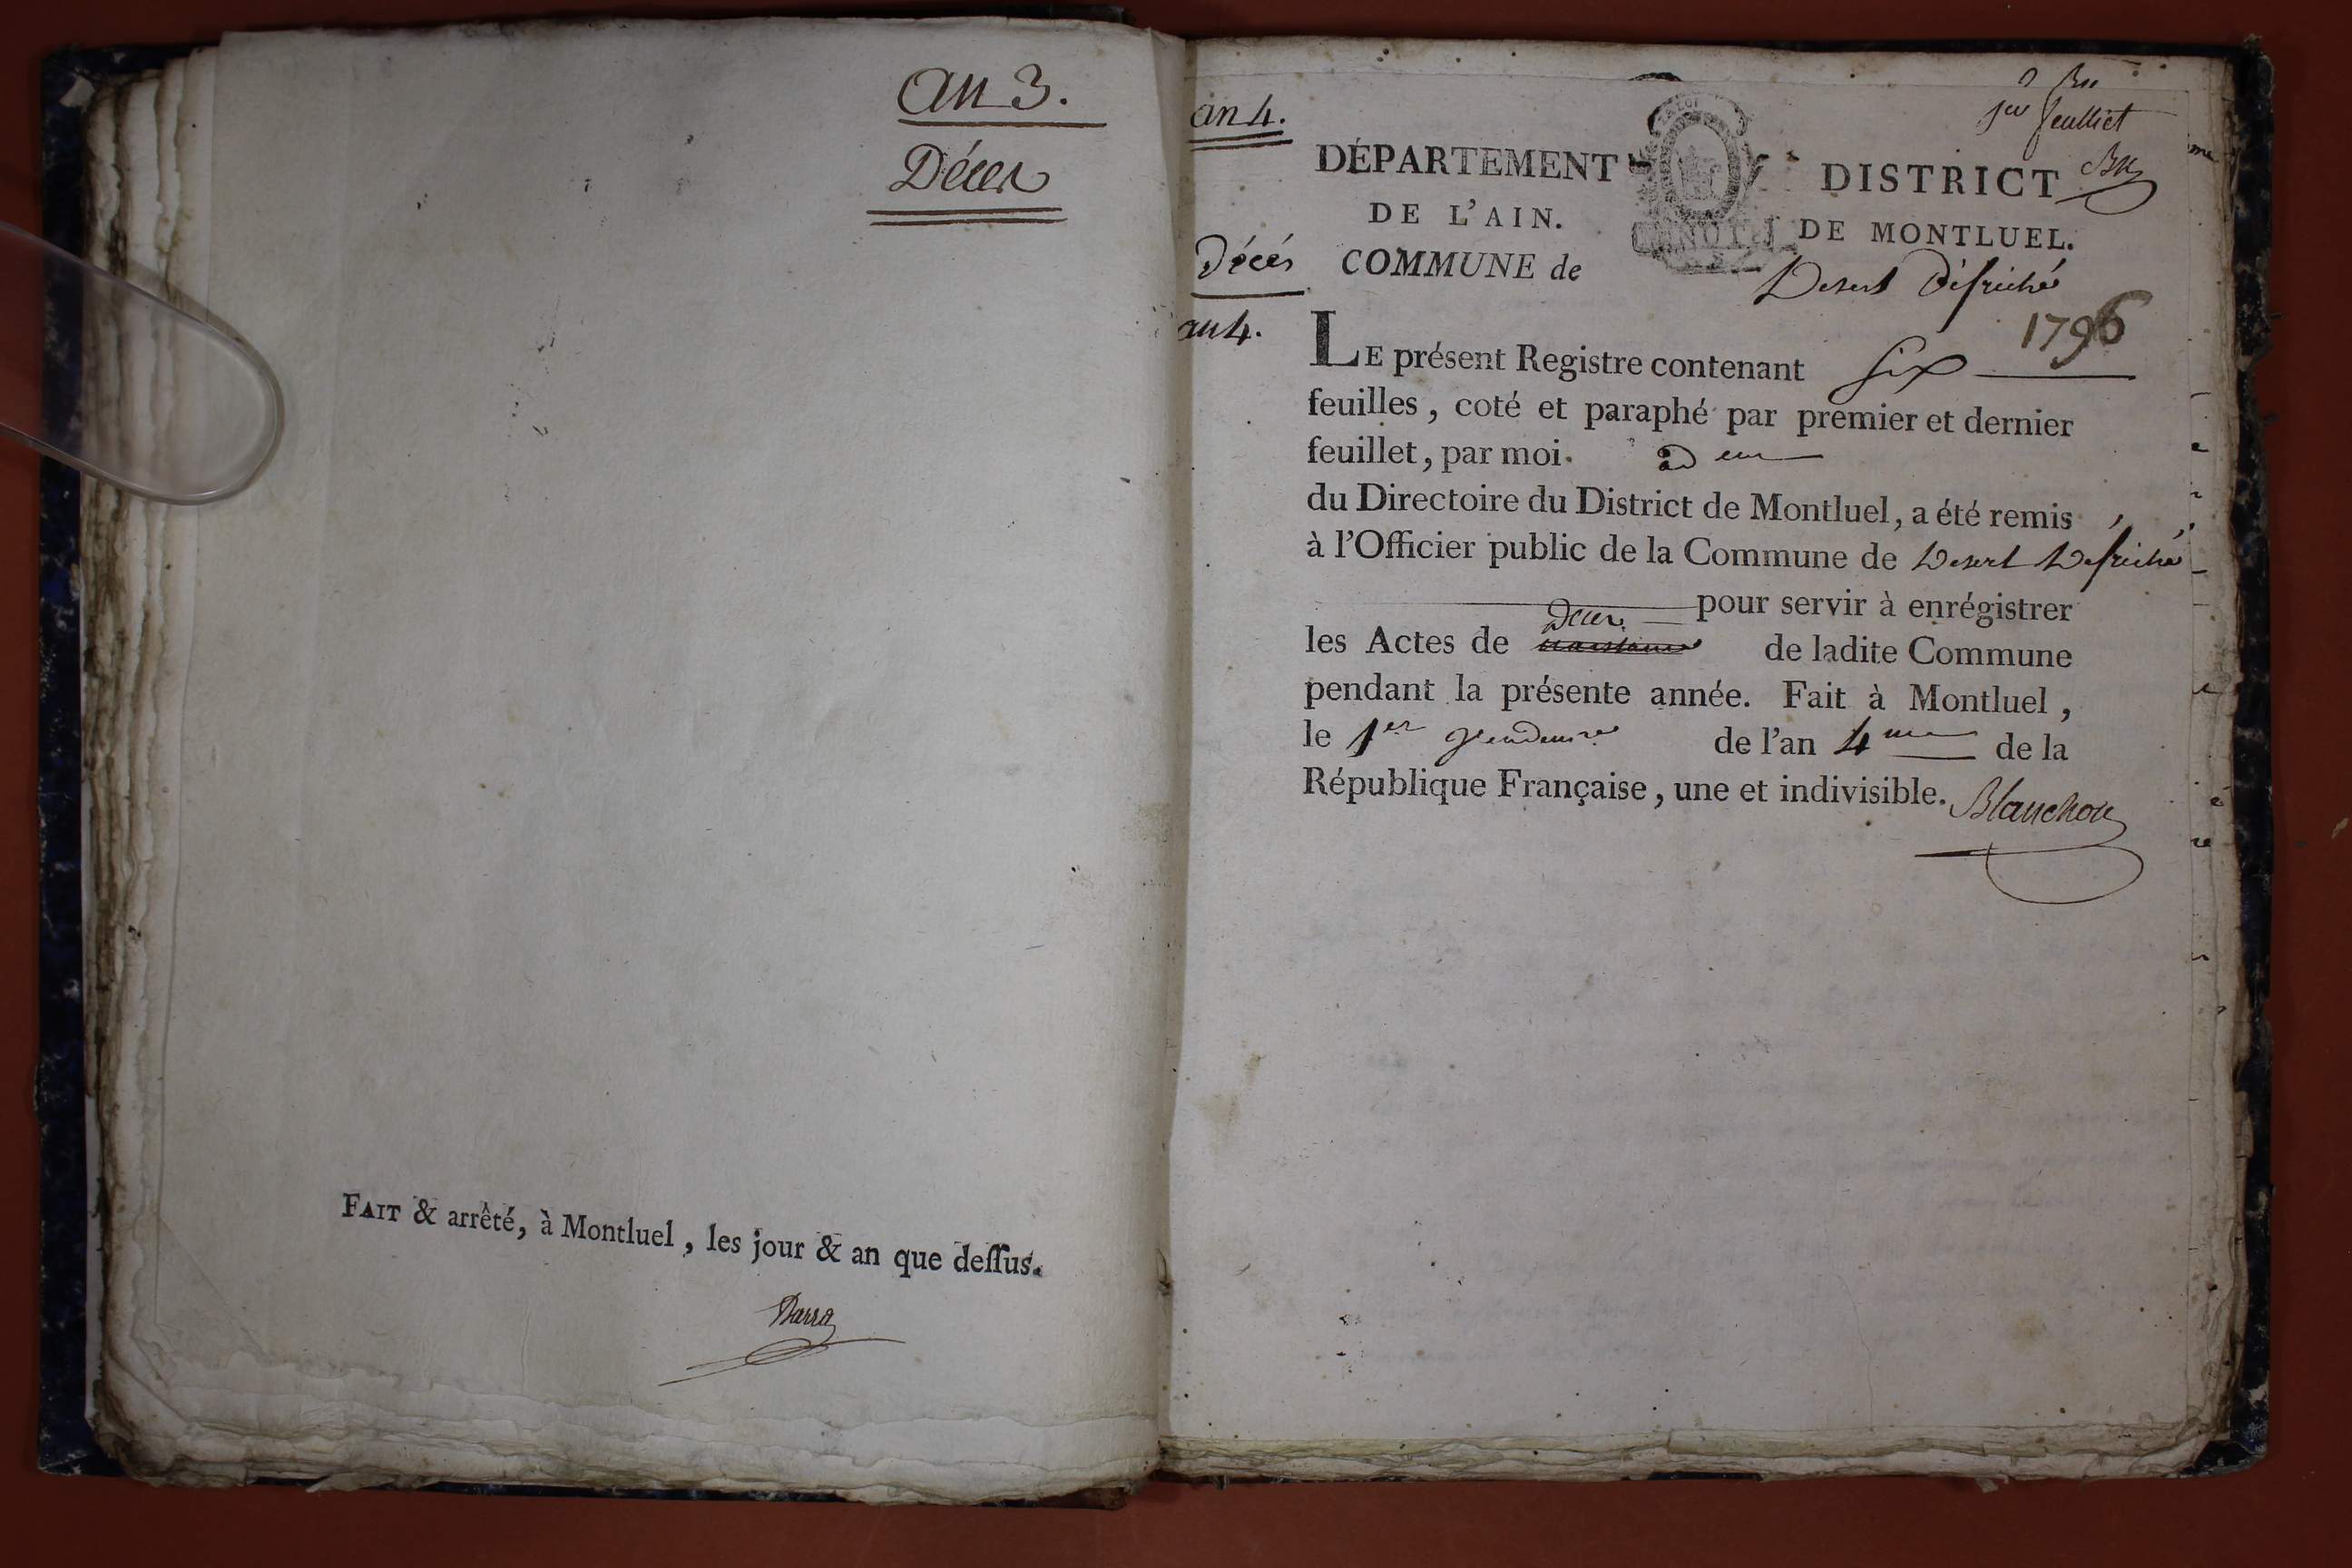 an 3.
Décès
FAIT & arrêté, à Montluel, les jour & an que dessus.
an 4.
Décés
an 4.
1er feulliet
DÉPARTEMENT
DE L'AIN.
DISTRICT
DE MONTLUEL.
COMMUNE de Desert Défriché
1796
LE présent Registre contenant six
feuilles, coté et paraphé par premier et dernier
feuillet, par moi.
du Directoire du District de Montluel, a été remis
à l'Officier public de la Commune de Desert Defriché
pour servir à enrégistrer
Décès
les Actes de naissance de ladite Commune
pendant la présente année. Fait à Montluel,
le 1er vendemre de l'an 4me de la
République Française, une et indivisible. Blanchon